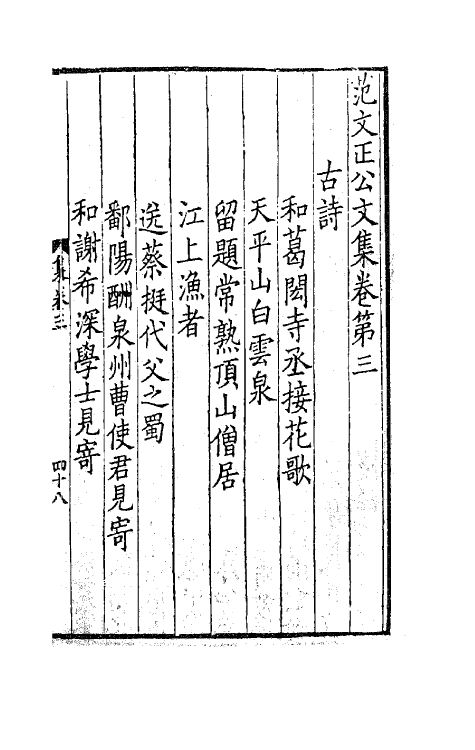 范文正公文集卷第三
古詩
和葛閎寺丞接花歌
天平山白雲泉
留題常熟頂山僧居
江上漁者
送蔡挺代父之蜀
鄱陽酬泉州曹使君見寄
和謝希深學士見寄
集卷三
四十八